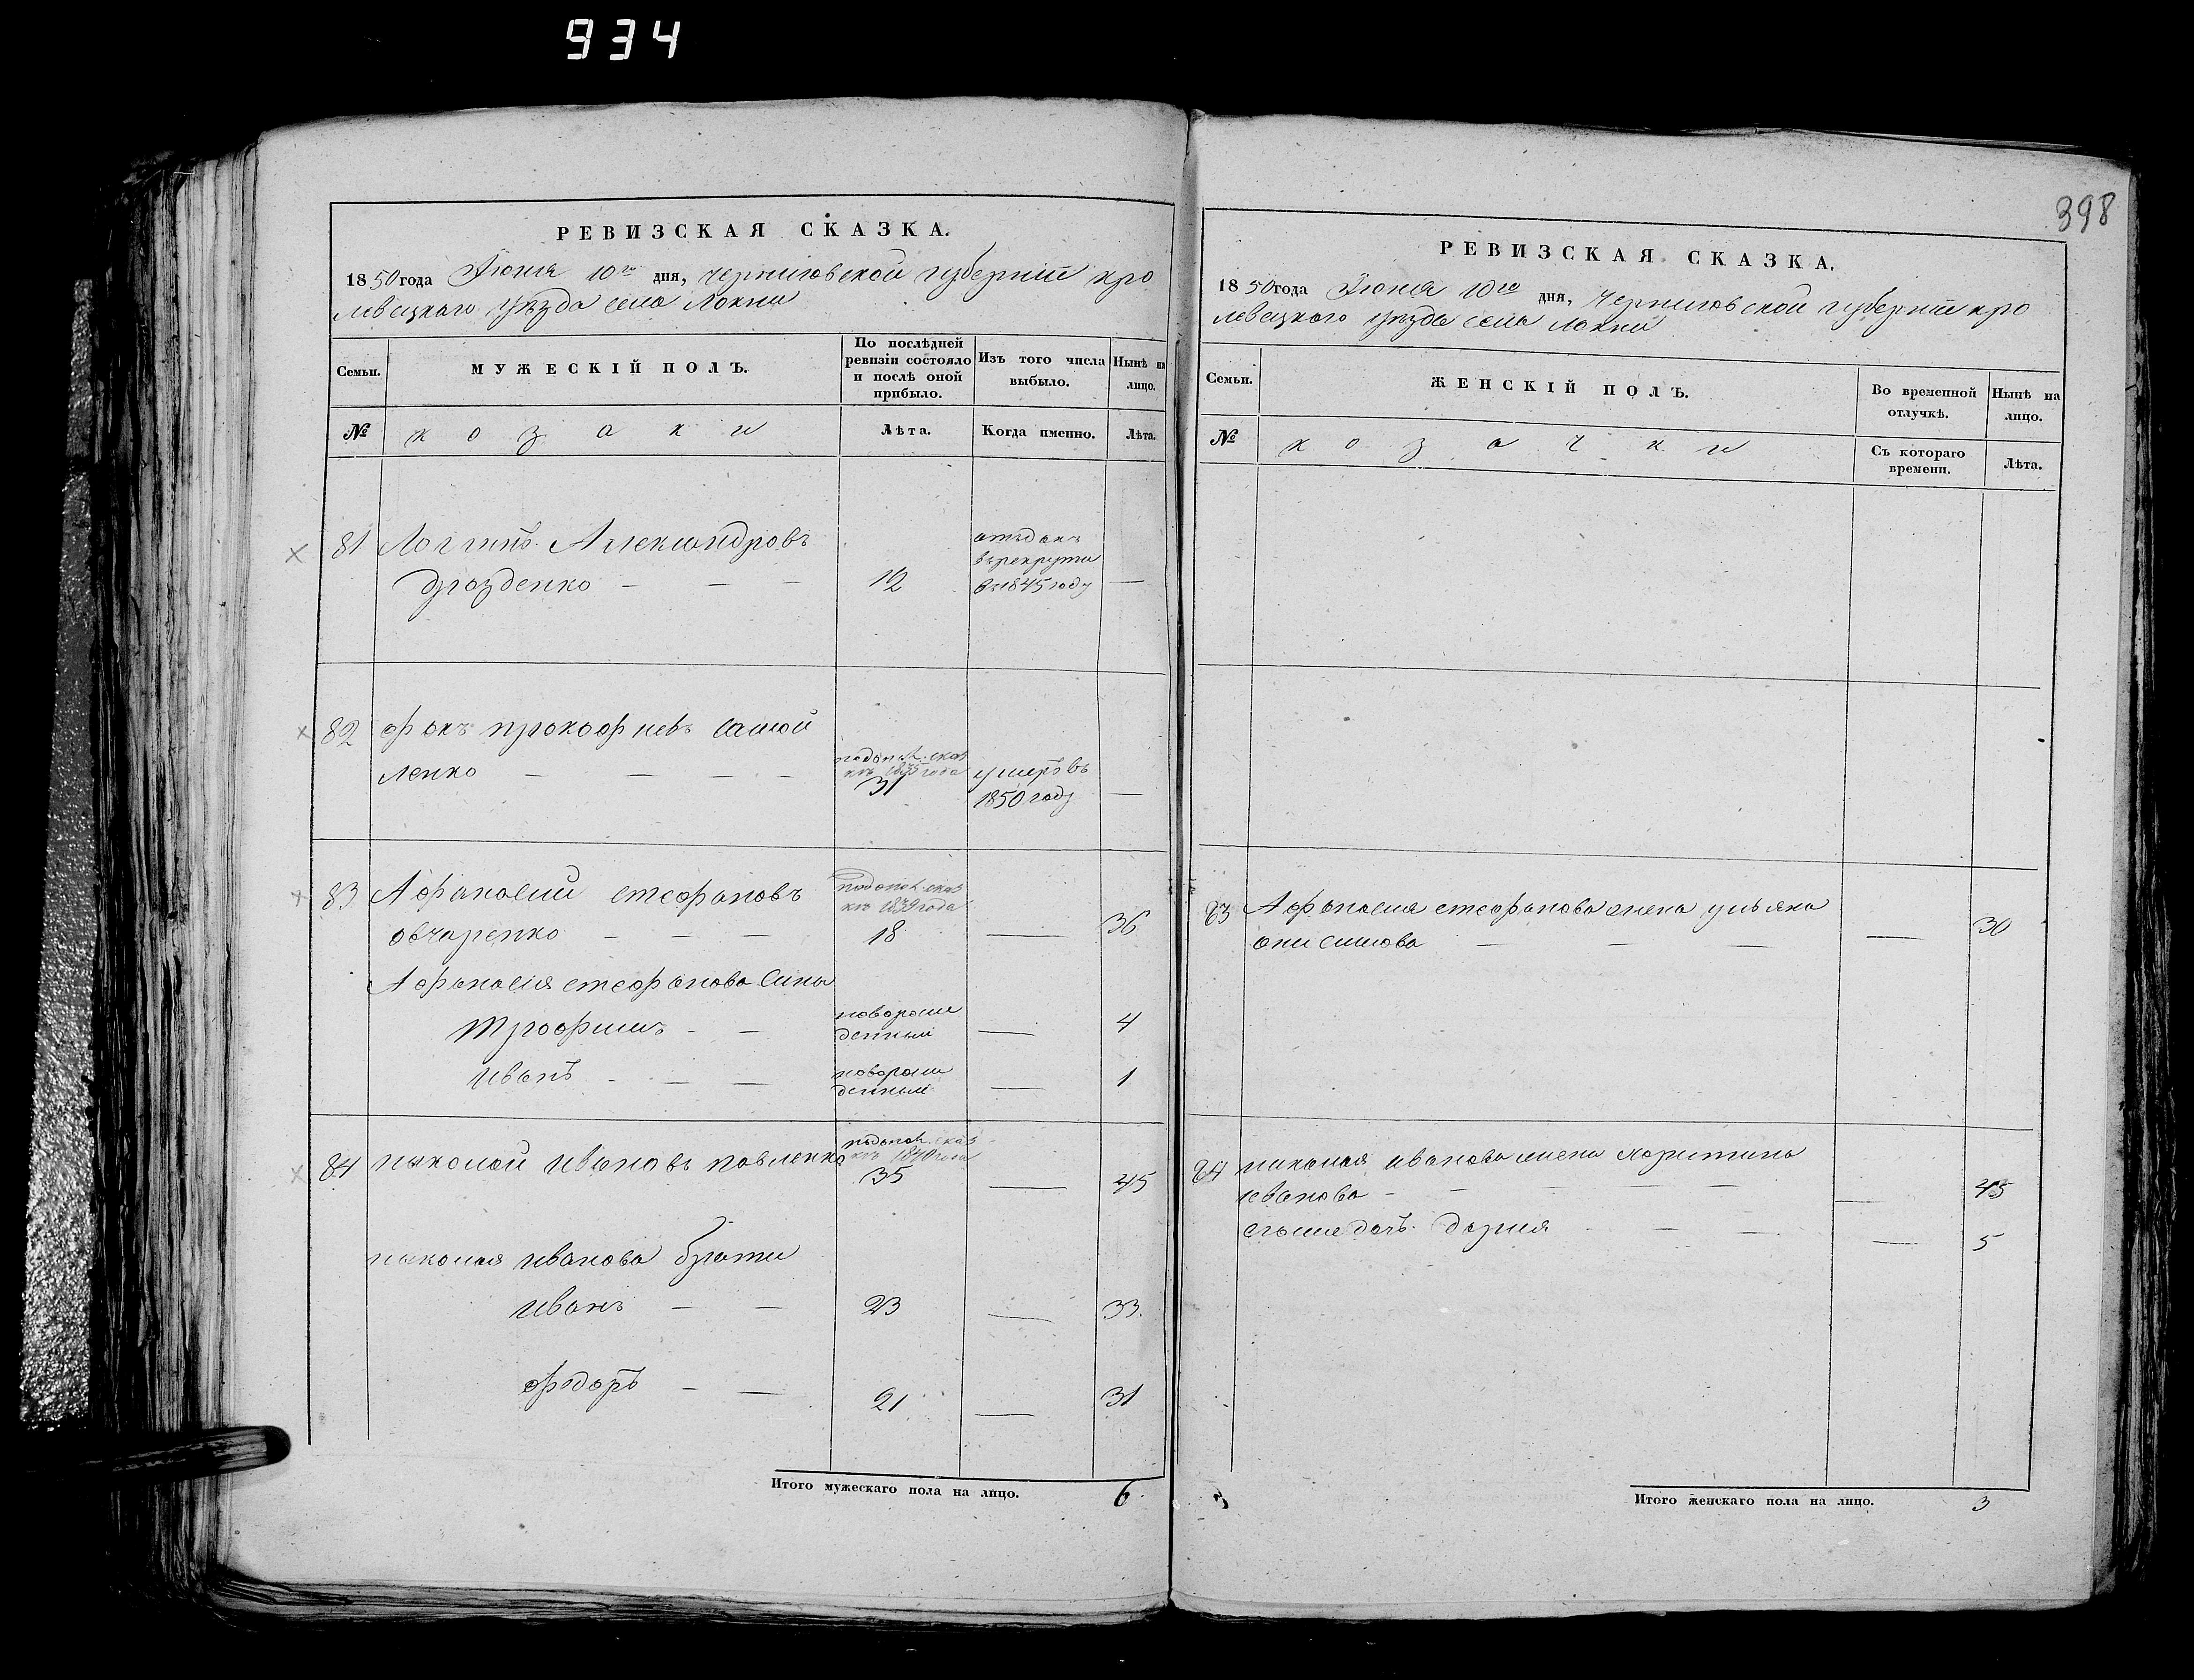 934
398
РЕВИЗСКАЯ СКАЗКА.
1850 года Іюня 10го дня, Черниговской губерніи кро
левецкаго уѣзда села Локни
Семьи.
МУЖЕСКІЙ ПОЛЪ.
По послѣдней ревизіи состояло и послѣ оной прибыло.
Изъ того числа выбыло.
Нынѣ на лицо.
№
козаки
Лѣта.
Когда именно.
Лѣта.
81 Логгинъ Александровъ
дрозденко — — — 12 отъданъ въ рекруты въ 1845 году —
82 фокъ прокофиевъ самой
ленко — — — — 31 умеръ въ 1850 году —
83 Афанасий стефановъ
овчаренко — — — 18 — 36
Афанасия стефанова сыны
трофимъ — — новорожденный — 4
иванъ — — новорожденный — 1
84 николай ивановъ павленко 35 — 45
николая иванова браты
иванъ — — 23 — 33
фёдоръ — — 21 — 31
Итого мужескаго пола на лицо. 6
РЕВИЗСКАЯ СКАЗКА.
1850 года Іюня 10го дня, Черниговской губерніи кро
левецкаго уѣзда села Локни
Семьи.
ЖЕНСКІЙ ПОЛЪ.
Во временной отлучкѣ.
Нынѣ на лицо.
№
козачки
Съ котораго времени.
Лѣта.
83 Афанасия стефанова жена ульяна
онисимова — — — — 30
84 николая иванова жена харитина
иванова — — — — — 45
дочь дария — — — 5
Итого женскаго пола на лицо. 3